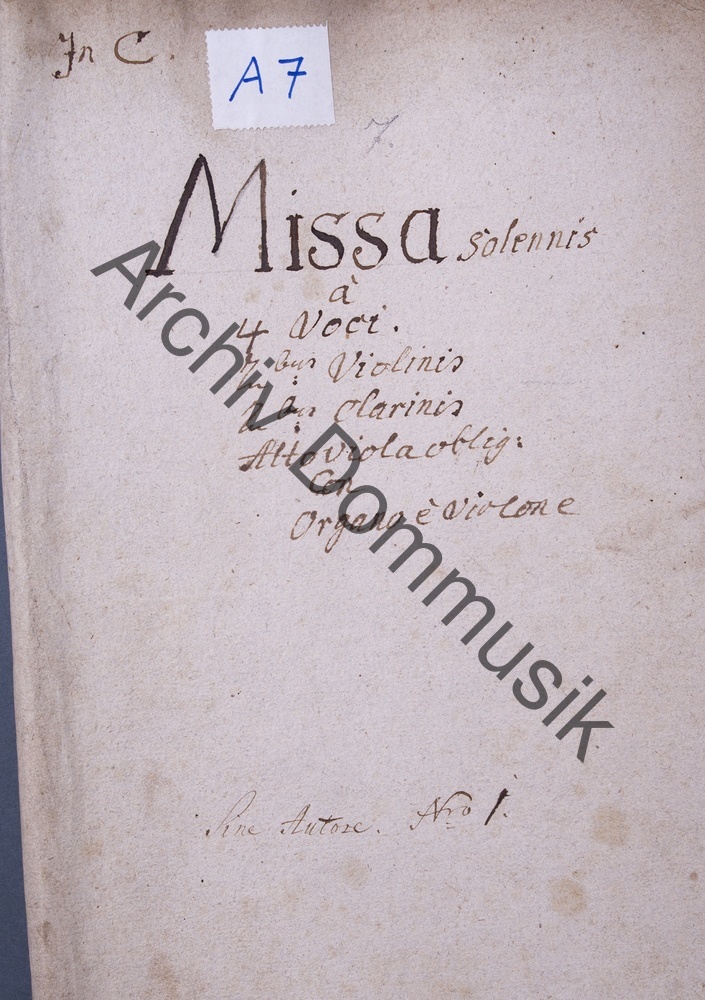 In C.
A7
7.
Missa solennis
à
4 Voci.
2bus Violinis
2bus Clarinis
Alto Viola oblig:
Con
Organo è Violone
Sine Autore. Nro 1.
Archiv Dommusik